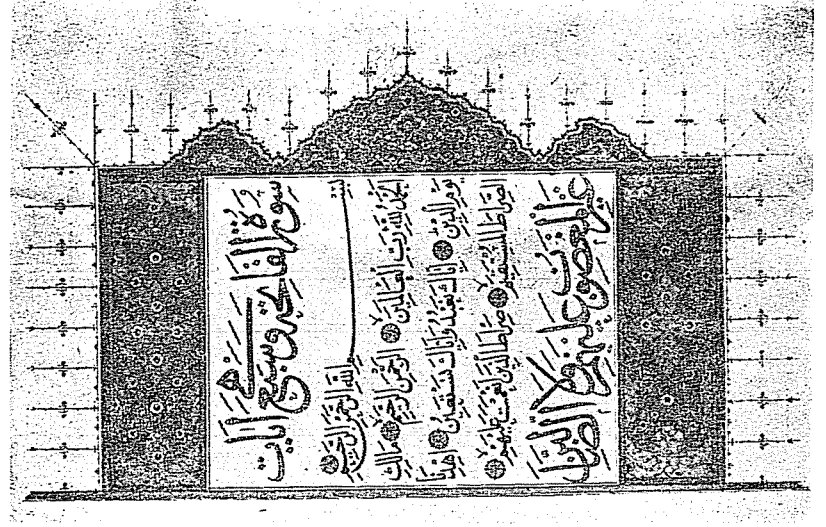 سُورَةُ الْفَاتِحَةِ وَهِيَ سَبْعُ اٰيَاتٍ
بِسْمِ اللّٰهِ الرَّحْمٰنِ الرَّحِيمِ
اَلْحَمْدُ لِلّٰهِ رَبِّ الْعَالَمِينَ الرَّحْمٰنِ الرَّحِيمِ مَالِكِ
يَوْمِ الدِّينِ اِيَّاكَ نَعْبُدُ وَاِيَّاكَ نَسْتَعِينُ اِهْدِنَا
الصِّرَاطَ الْمُسْتَقِيمَ صِرَاطَ الَّذِينَ اَنْعَمْتَ عَلَيْهِمْ
غَيْرِ الْمَغْضُوبِ عَلَيْهِمْ وَلَا الضَّالِّينَ